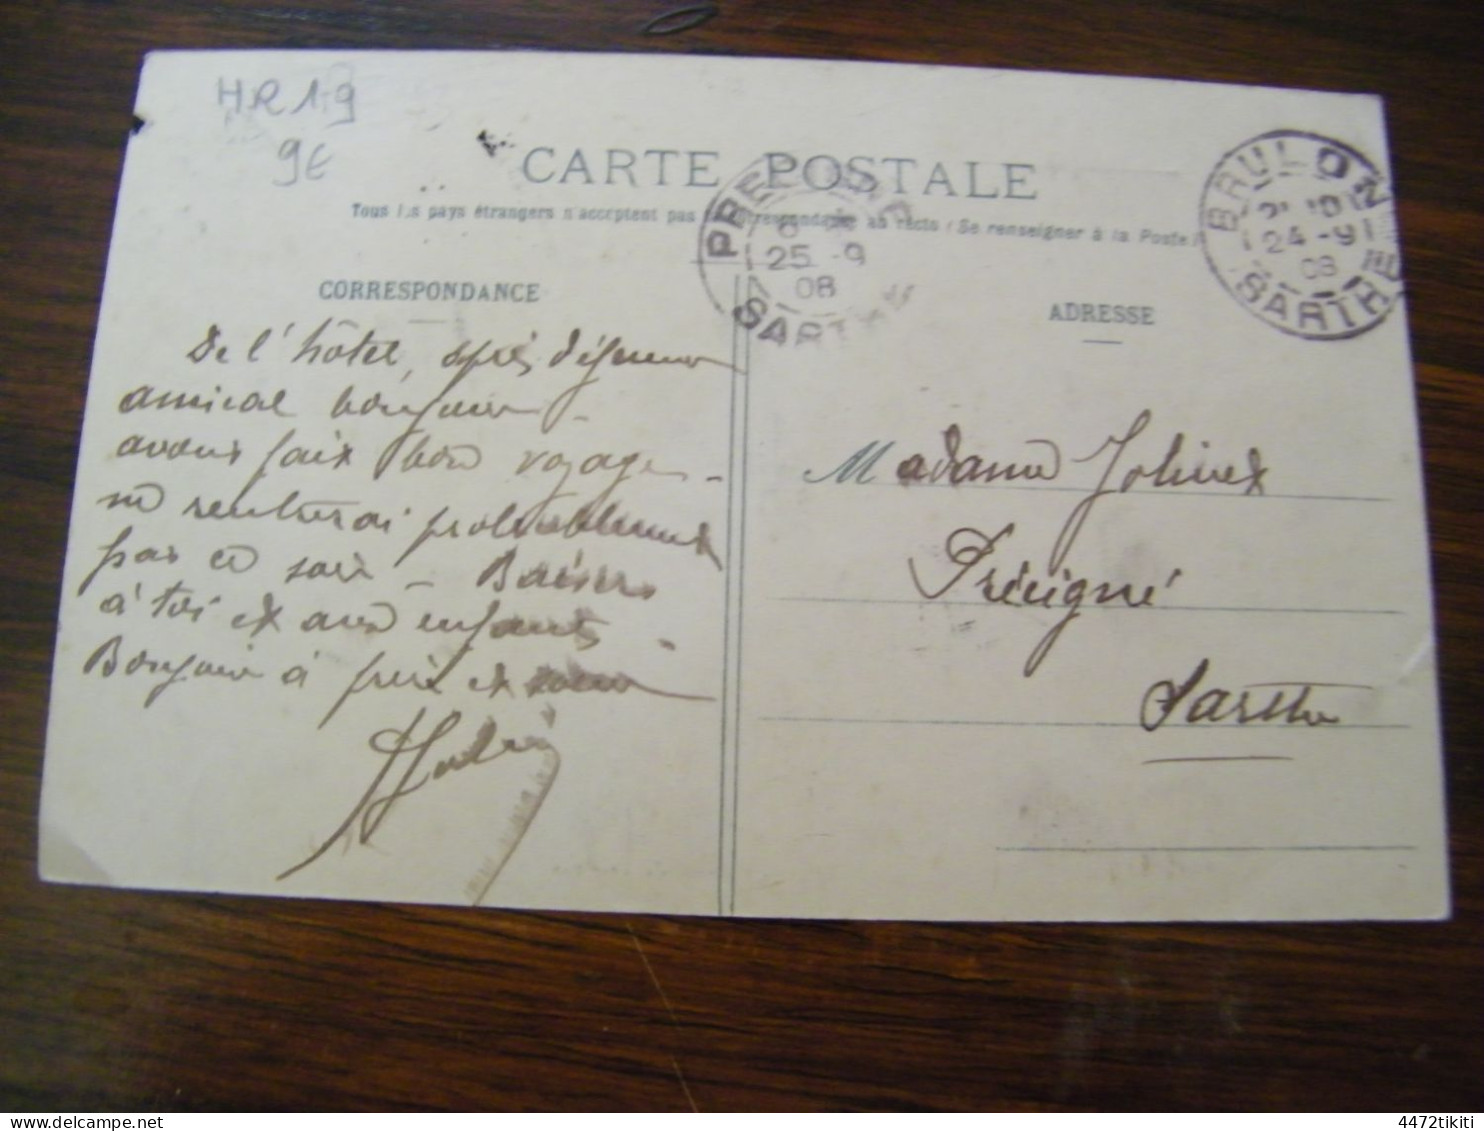 HR19
9€
CARTE POSTALE
Tous les pays étrangers n'acceptent pas la correspondance au recto (Se renseigner à la Poste)
PRECIGNE
25 -9
08
SARTHE
BRULON
24 -9
08
SARTHE
CORRESPONDANCE
ADRESSE
De l'hôtel, après déjeuner
amical bonjour -
avons fait bon voyage -
ne rentrerai probablement
pas ce soir - Baisers
à toi et aux enfants -
Bonjour à père et sœur
Madame Jolivet
Précigné
Sarthe
4472tikiti